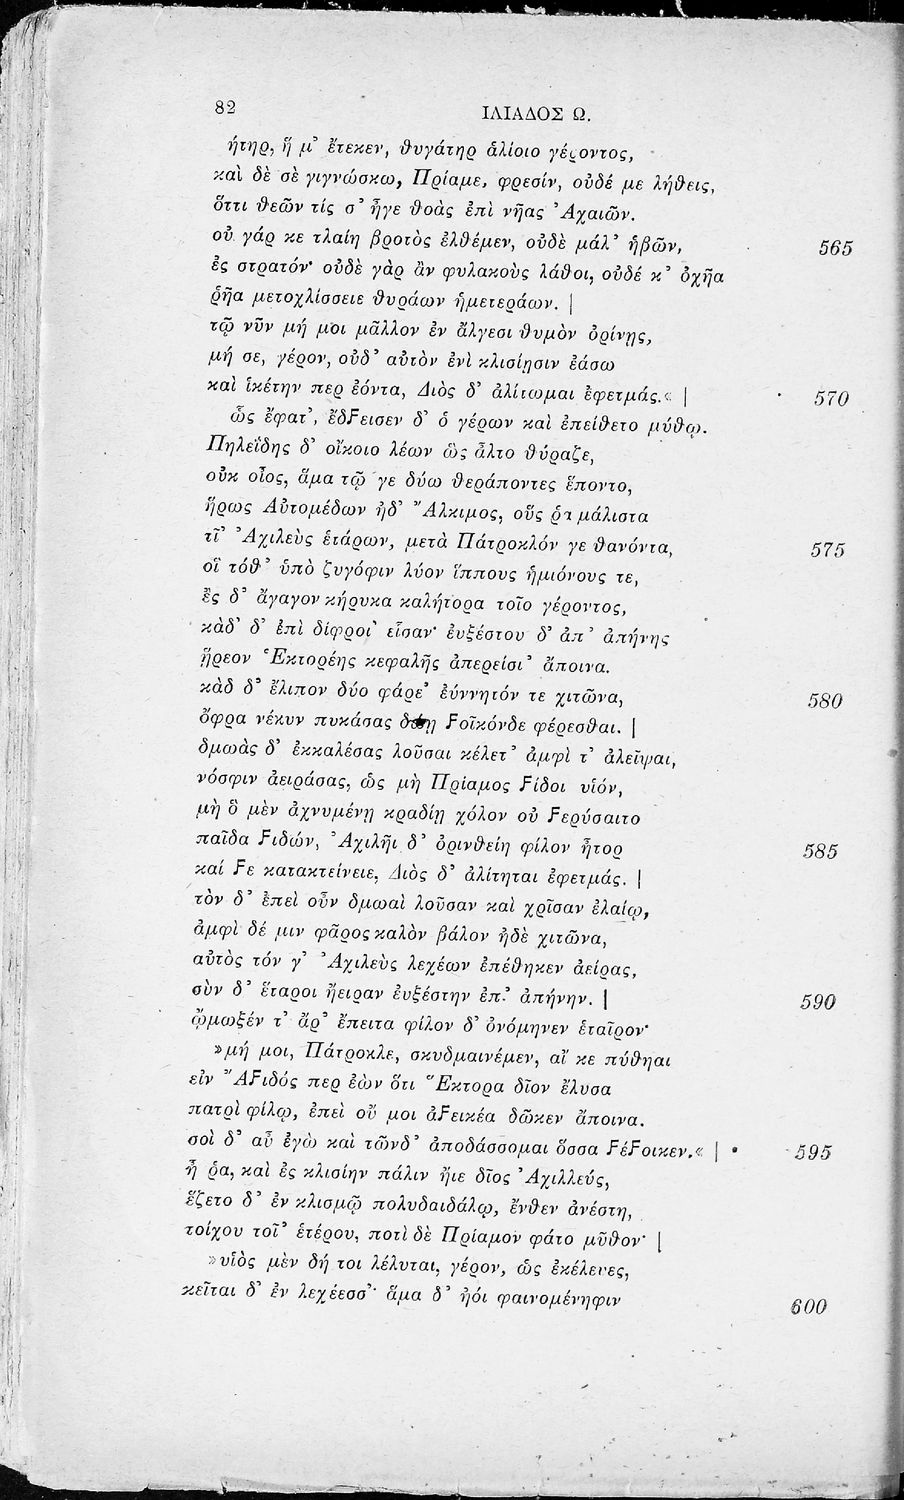 82
ΙΛΙΑΔΟΣ Ω.
ήτηρ, ἥ μ' ἔτεκεν, θυγάτηρ ἁλίοιο γέροντος,
καὶ δὲ σὲ γιγνώσκω, Πρίαμε, φρεσίν, οὐδέ με λήθεις,
ὅττι θεῶν τίς σ' ἦγε θοὰς ἐπὶ νῆας Ἀχαιῶν.
οὐ γάρ κε τλαίη βροτὸς ἐλθέμεν, οὐδὲ μάλ' ἡβῶν, 565
ἐς στρατόν· οὐδὲ γὰρ ἂν φυλακοὺς λάθοι, οὐδέ κ' ὀχῆα
ῥῆα μετοχλίσσειε θυράων ἡμετεράων. |
τῷ νῦν μή μοι μᾶλλον ἐν ἄλγεσι θυμὸν ὀρίνῃς,
μή σε, γέρον, οὐδ' αὐτὸν ἐνὶ κλισίῃσιν ἐάσω
καὶ ἱκέτην περ ἐόντα, Διὸς δ' ἀλίτωμαι ἐφετμάς.« | 570
ὣς ἔφατ', ἔδϝεισεν δ' ὁ γέρων καὶ ἐπείθετο μύθῳ.
Πηλεΐδης δ' οἴκοιο λέων ὣς ἆλτο θύραζε,
οὐκ οἶος, ἅμα τῷ γε δύω θεράποντες ἕποντο,
ἥρως Αὐτομέδων ἠδ' Ἄλκιμος, οὕς ῥα μάλιστα
τῖ' Ἀχιλεὺς ἑτάρων, μετὰ Πάτροκλόν γε θανόντα, 575
οἳ τόθ' ὑπὸ ζυγόφιν λύον ἵππους ἡμιόνους τε,
ἐς δ' ἄγαγον κήρυκα καλήτορα τοῖο γέροντος,
κὰδ' δ' ἐπὶ δίφροι' εἷσαν· ἐυξέστου δ' ἀπ' ἀπήνης
ᾕρεον Ἑκτορέης κεφαλῆς ἀπερείσι' ἄποινα.
κὰδ δ' ἔλιπον δύο φάρε' ἐύννητόν τε χιτῶνα, 580
ὄφρα νέκυν πυκάσας δώῃ ϝοῖκόνδε φέρεσθαι. |
δμωὰς δ' ἐκκαλέσας λοῦσαι κέλετ' ἀμφὶ τ' ἀλεῖψαι,
νόσφιν ἀειράσας, ὡς μὴ Πρίαμος ϝίδοι υἱόν,
μὴ ὃ μὲν ἀχνυμένῃ κραδίῃ χόλον οὐ ϝερύσαιτο
παῖδα ϝιδών, Ἀχιλῆι δ' ὀρινθείη φίλον ἦτορ 585
καί ϝε κατακτείνειε, Διὸς δ' ἀλίτηται ἐφετμάς. |
τὸν δ' ἐπεὶ οὖν δμωαὶ λοῦσαν καὶ χρῖσαν ἐλαίῳ,
ἀμφὶ δέ μιν φᾶρος καλὸν βάλον ἠδὲ χιτῶνα,
αὐτὸς τόν γ' Ἀχιλεὺς λεχέων ἐπέθηκεν ἀείρας,
σὺν δ' ἕταροι ἤειραν ἐυξέστην ἐπ' ἀπήνην. | 590
ᾤμωξέν τ' ἄρ' ἔπειτα φίλον δ' ὀνόμηνεν ἑταῖρον·
»μή μοι, Πάτροκλε, σκυδμαινέμεν, αἴ κε πύθηαι
εἰν Ἄϝιδός περ ἐὼν ὅτι Ἕκτορα δῖον ἔλυσα
πατρὶ φίλῳ, ἐπεὶ οὔ μοι ἀϝεικέα δῶκεν ἄποινα.
σοὶ δ' αὖ ἐγὼ καὶ τῶνδ' ἀποδάσσομαι ὅσσα ϝέϝοικεν.« | 595
ἦ ῥα, καὶ ἐς κλισίην πάλιν ἤιε δῖος Ἀχιλλεύς,
ἕζετο δ' ἐν κλισμῷ πολυδαιδάλῳ, ἔνθεν ἀνέστη,
τοίχου τοῖ' ἑτέρου, ποτὶ δὲ Πρίαμον φάτο μῦθον· |
»υἱὸς μὲν δή τοι λέλυται, γέρον, ὡς ἐκέλευες,
κεῖται δ' ἐν λεχέεσσ'· ἅμα δ' ἠόι φαινομένηφιν 600